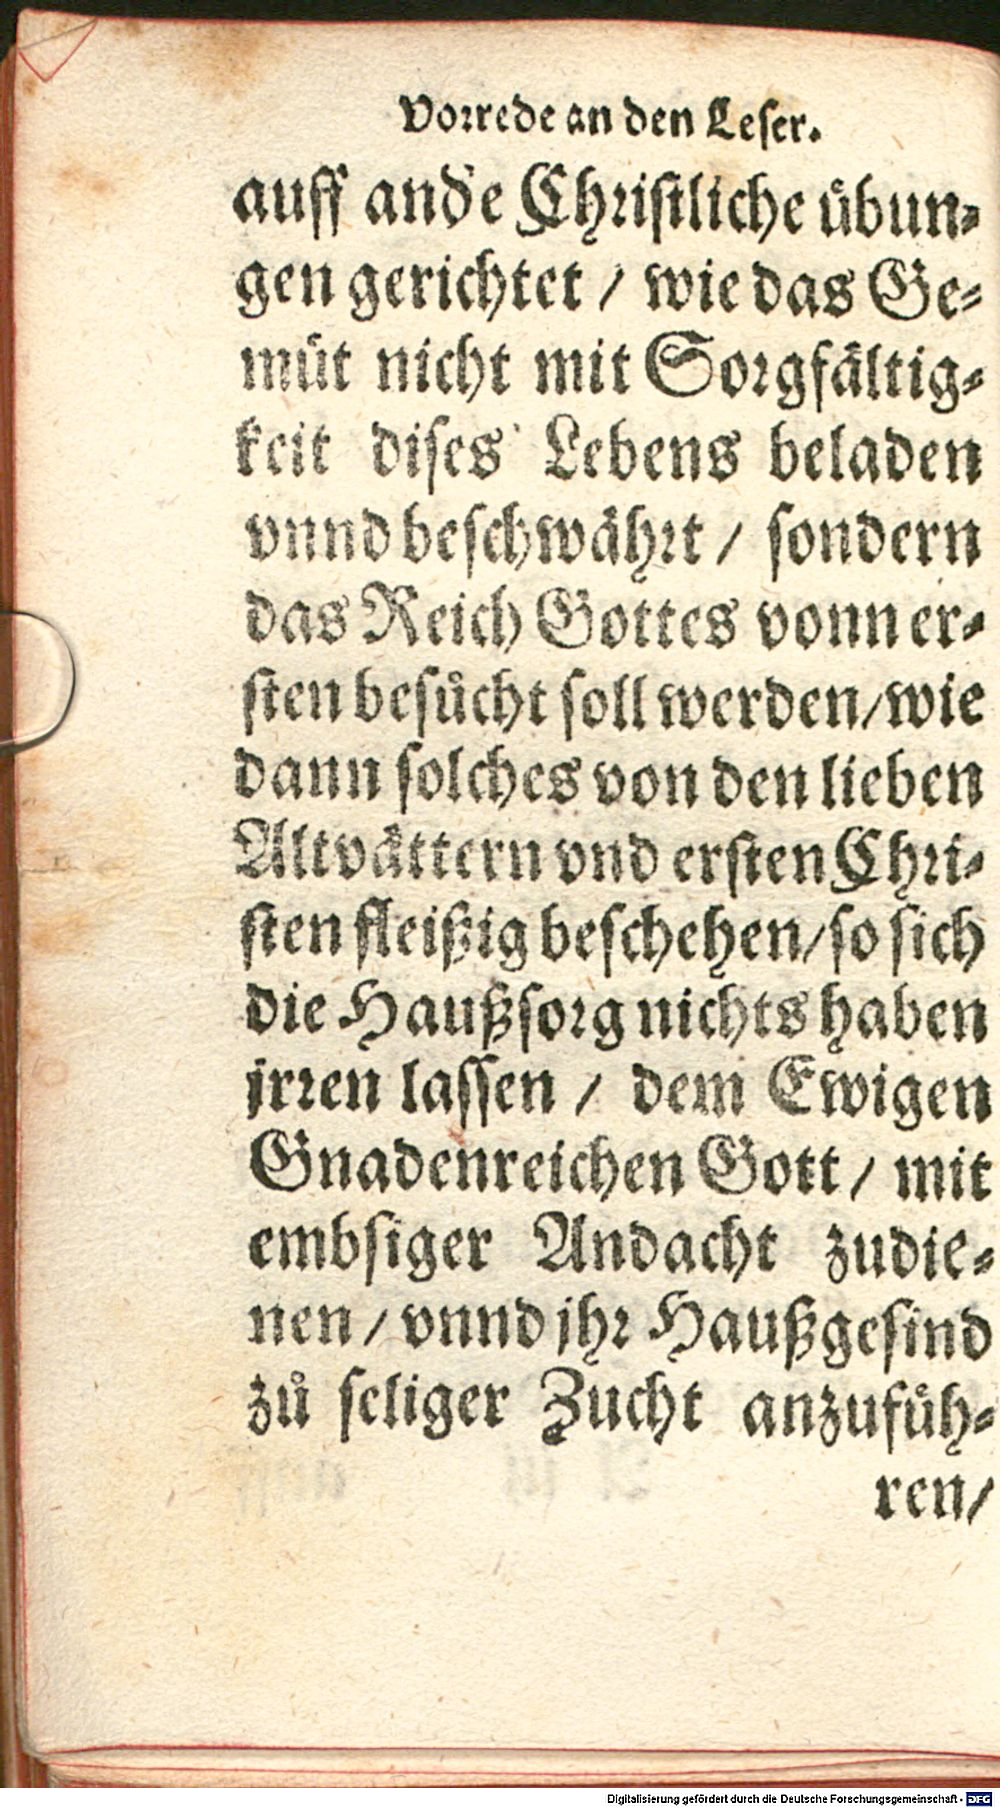 Vorrede an den Leſer.
auff and'e Chriſtliche uͤbun⸗
gen gerichtet / wie das Ge⸗
muͤt nicht mit Sorgfaͤltig⸗
keit diſes Lebens beladen
vnnd beſchwaͤhrt / ſondern
das Reich Gottes vonn er⸗
ſten beſuͤcht ſoll werden/wie
dann ſolches von den lieben
Altvaͤttern vnd erſten Chri⸗
ſten fleißig beſchehen/ſo ſich
die Haußſorg nichts haben
jrren laſſen / dem Ewigen
Gnadenreichen Gott / mit
embſiger Andacht zudie⸗
nen / vnnd jhr Haußgeſind
zuͦ ſeliger Zucht anzufuͤh⸗
ren/
Digitalisierung gefördert durch die Deutsche Forschungsgemeinschaft - DFG